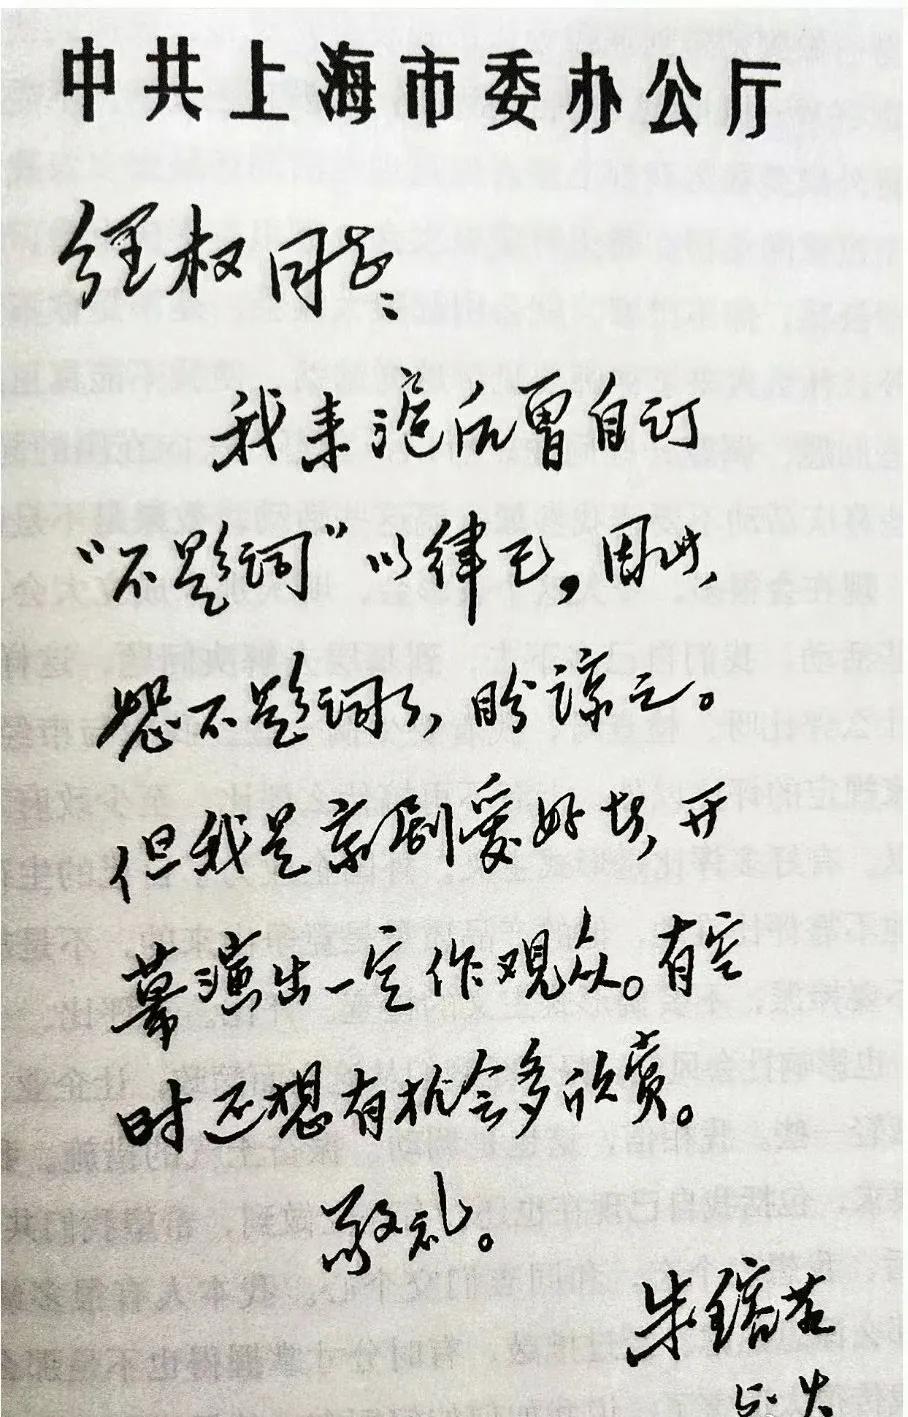 中共上海市委办公厅
经权同志：
我来沪后曾自订
“不题词”以律己，因此，
恕不题词了，盼谅之。
但我是京剧爱好者，开
幕演出一定作观众。有空
时还想有机会多欣赏。
敬礼。
朱镕基